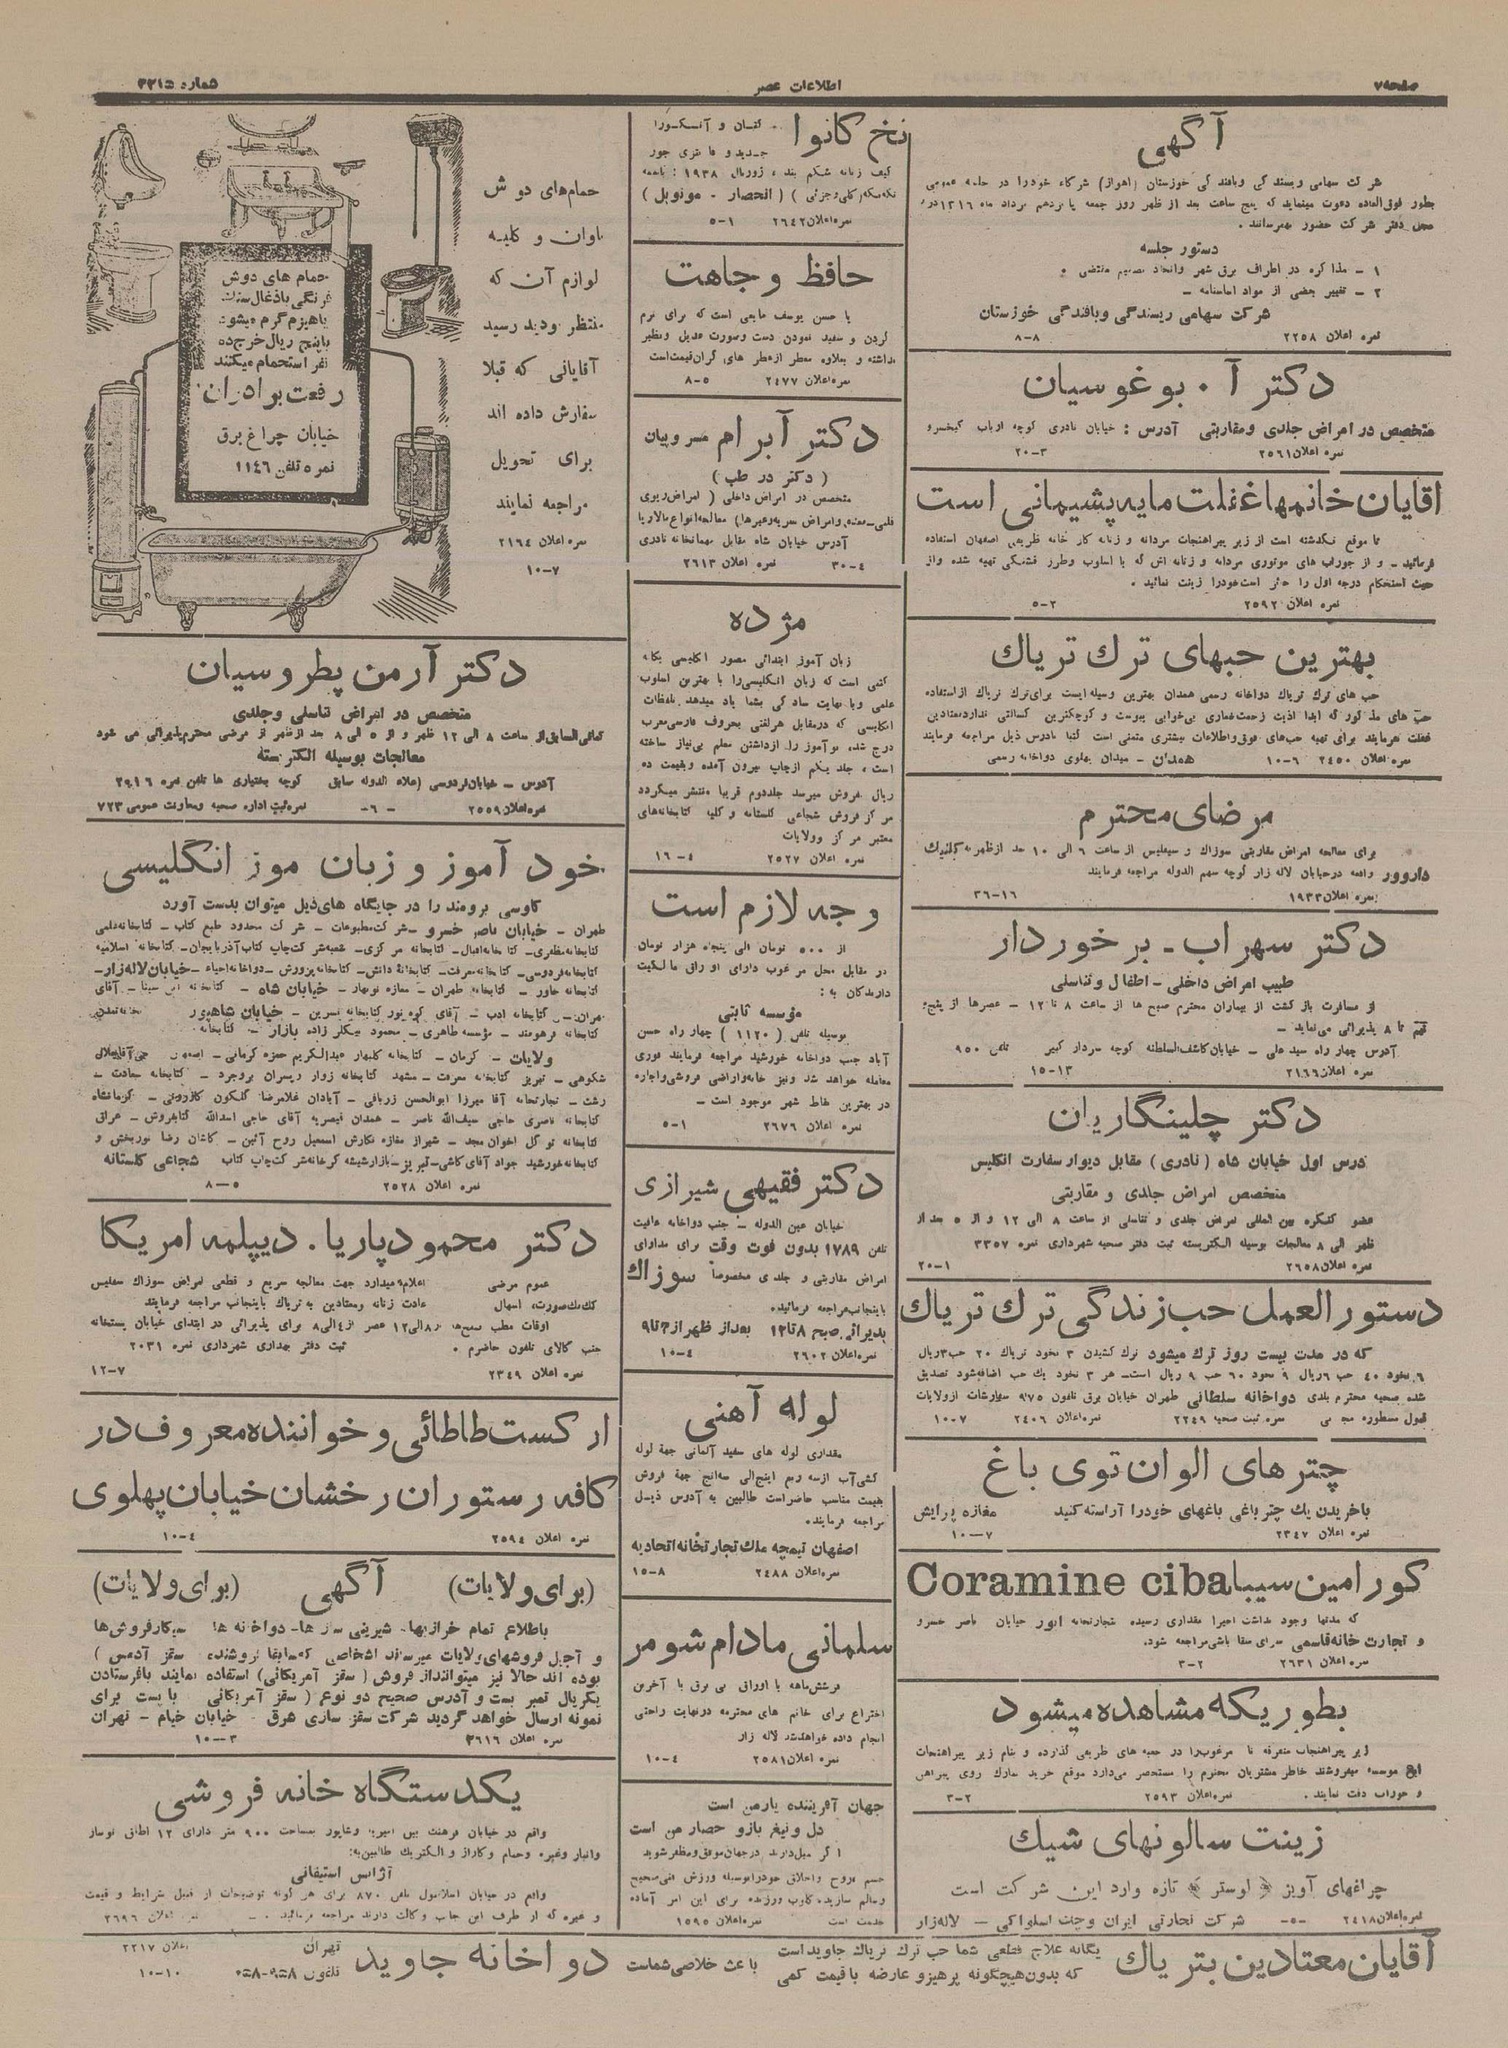 صفحه ۷
اطلاعات عصر
شماره ۳۳۱۵
آگهی
شرکت سهامی ریسندگی وبافندگی خوزستان (اهواز) شرکاء خودرا در جلسه عمومی
بطور فوق‌العاده دعوت مینماید که پنج ساعت بعد از ظهر روز جمعه پانزدهم مرداد ماه ۱۳۱۶ در
محل دفتر شرکت حضور بهمرسانند .
دستور جلسه
۱ - مذاکره در اطراف برق شهر واتخاذ تصمیم مقتضی .
۲ - تغییر بعضی از مواد اساسنامه -
شرکت سهامی ریسندگی وبافندگی خوزستان
نمره اعلان ۲۲۵۸ ۸-۸
دکتر آ . بوغوسیان
متخصص در امراض جلدی ومقاربتی آدرس : خیابان نادری کوچه ارباب کیخسرو
نمره اعلان ۲۵۶۱ ۲۰-۳
آقایان خانمها غفلت مایه پشیمانی است
تا موقع نگذشته است از زیر پیراهنجات مردانه و زنانه کار خانه ظریفی اصفهان استفاده
فرمائید - و از جوراب های موتوری مردانه و زنانه اش که با اسلوب وطرز قشنگی تهیه شده واز
حیث استحکام درجه اول را حائز است خودرا زینت نمائید .
نمره اعلان ۲۵۹۲ ۵-۲
بهترین حبهای ترک تریاک
حب های ترک تریاک دواخانه رسمی همدان بهترین وسیله ایست برای ترک تریاک از استفاده
حب های مذکور که ابدا اذیت زحمت خماری بی‌خوابی یبوست و کوچکترین کسالتی ندارد معتادین
غفلت نفرمایند برای تهیه حب‌های فوق واطلاعات بیشتری متمنی است کتبا بادرس ذیل مراجعه فرمایند
نمره اعلان ۲۴۵۰ ۱۰-۶ همدان - میدان پهلوی دواخانه رسمی
مرضای محترم
برای معالجه امراض مقاربتی سوزاک و سیفلیس از ساعت ۶ الی ۱۰ بعد از ظهر به کلینیک
داروور واقعه در خیابان لاله زار کوچه سهم الدوله مراجعه فرمایند
نمره اعلان ۱۹۳۳ ۳۶-۱۶
دکتر سهراب - برخوردار
طبیب امراض داخلی - اطفال و تناسلی
از مسافرت باز گشت از بیماران محترم صبح ها از ساعت ۸ تا ۱۲ - عصرها از پنج
تا ۸ پذیرائی می‌نماید -
آدرس چهار راه سید علی - خیابان کاشف‌السلطنه کوچه سردار کبیر تلفن ۹۵۰
نمره اعلان ۲۱۶۶ ۱۵-۱۳
دکتر چلینگاریان
درس اول خیابان شاه (نادری) مقابل دیوار سفارت انگلیس
متخصص امراض جلدی و مقاربتی
عضو کنگره بین المللی امراض جلدی و تناسلی از ساعت ۸ الی ۱۲ و از ۵ بعد از
ظهر الی ۸ معالجات بوسیله الکتریسته ثبت دفتر صحیه شهرداری نمره ۳۳۵۷
نمره اعلان ۲۶۵۸ ۲۰-۱
دستورالعمل حب زندگی ترک تریاک
که در مدت بیست روز ترک میشود ترک کشیدن ۳ نخود تریاک ۲۰ حب ۳ ریال
۶ نخود ۴۰ حب ۶ ریال ۹ نخود ۶۰ حب ۹ ریال است - هر ۳ نخود یک حب اضافه شود تصدیق
شده صحیه محترم بلدی دواخانه سلطانی طهران خیابان برق تلفون ۹۷۵ سفارشات از ولایات
قبول نمره ثبت صحیه ۲۲۴۹ نمره اعلان ۲۴۰۶ ۱۰-۷
چترهای الوان توی باغ
با خریدن یک چتر باغی باغهای خودرا آراسته کنید مغازه پرایش
نمره اعلان ۲۳۴۷ ۱۰-۷
کورامین سیبا Coramine ciba
که مدتها وجود نداشت اخیرا مقداری رسیده بتجارتخانه انور خیابان ناصر خسرو
و تجارت خانه قاسمی سرای سقا باشی مراجعه شود.
نمره اعلان ۲۶۳۱ ۳-۲
بطوریکه مشاهده میشود
زیر پیراهنجات متفرقه نا مرغوب را در جعبه های ظریفی گذارده و بنام زیر پیراهنجات
این موسسه میفروشند خاطر مشتریان محترم را مستحضر می‌دارد موقع خرید بمارک روی پیراهن
و جوراب دقت نمایند . نمره اعلان ۲۵۹۳ ۳-۲
زینت سالونهای شیک
چراغهای آویز «لوستر» تازه وارد این شرکت است
نمره اعلان ۲۴۱۸ -۵- شرکت تجارتی ایران وچک اسلواکی - لاله زار
نخ کانوا
کتان و آنکورا
جدید و فانتزی جور
کیف زنانه شکم بند ، ژورنال ۱۹۳۸ :
(کلی وجزئی) (انحصار - مونوپل)
نمره اعلان ۲۶۴۲ ۵-۱
حافظ وجاهت
یا حسن یوسف مایعی است که برای نرم
کردن و سفید نمودن دست وصورت عدیل ونظیر
نداشته و بعلاوه معطر از عطر های گران قیمت است
نمره اعلان ۲۴۷۷ ۸-۵
دکتر آبرام
(دکتر در طب)
متخصص در امراض داخلی (امراض ریوی
قلبی - معده وامراض عصریه وغیرها) معالجه انواع مالاریا
آدرس خیابان شاه مقابل مهمانخانه نادری
نمره اعلان ۲۶۱۳ ۳۰-۴
مژده
زبان آموز ابتدائی مصور انگلیسی یگانه
کتبی است که زبان انگلیسی را با بهترین اسلوب
علمی وبا نهایت سادگی بشما یاد میدهد تلفظات
انگلیسی که در مقابل هر لغتی بحروف فارسی معرب
درج شده نوآموز را از داشتن معلم بی‌نیاز ساخته
است ، جلد یکم از چاپ بیرون آمده و بقیمت ده
ریال بفروش میرسد جلد دوم قریبا منتشر میگردد
مرکز فروش شجاعی گلستانه و کلیه کتابخانه‌های
معتبر مرکز وولایات
نمره اعلان ۲۵۲۷ ۱۶-۴
وجه لازم است
از ۵۰۰ تومان الی پنجاه هزار تومان
در مقابل محل مرغوب دارای اوراق مالکیت
دارندگان به :
مؤسسه ثابتی
بوسیله تلفن (۱۱۲۰) چهار راه حسن
آباد جنب دواخانه خورشید مراجعه فرمایند فوری
معامله خواهد شد ونیز خانه واراضی فروشی واجاره
در بهترین نقاط شهر موجود است -
نمره اعلان ۲۶۷۶ ۵-۱
دکتر فقیهی شیرازی
خیابان عین الدوله - جنب دواخانه عافیت
تلفن ۱۷۸۹ بدون فوت وقت برای مداوای
امراض مقاربتی و جلدی مخصوصا سوزاک
باینجانب مراجعه فرمائید.
پذیرائی صبح ۸ تا ۱۲ بعداز ظهر از ۳ تا ۹
نمره اعلان ۲۶۰۲ ۱۰-۴
لوله آهنی
مقداری لوله های سفید آلمانی جهة لوله
کشی آب از سه ربع اینچ الی سه اینچ جهة فروش
بقیمت مناسب حاضر است طالبین به آدرس ذیل
مراجعه فرمایند.
اصفهان تیمچه ملک تجارتخانه اتحادیه
نمره اعلان ۲۴۸۸ ۱۵-۸
سلمانی مادام شومر
فرشش ماهه با اوراق بی برق با آخرین
اختراع برای خانم های محترمه در نهایت راحتی
انجام داده خواهد شد لاله زار
نمره اعلان ۲۵۸۱ ۱۰-۴
جهان آفریننده یار من است
دل و تیغ بازو حصار من است
اگر میل دارید در جهان موفق ومظفر شوید
جسم وروح واخلاق خودرا بوسیله ورزش فنی صحیح
وسالم سازید. کلوب ورزنده برای این امر آماده
خدمت است نمره اعلان ۱۵۹۵
حمام‌های دوش
فرنگی باذغال سنگ
یاهیزم گرم میشود
باپنج ریال خرج ده
نفر استحمام میکنند
رفعت برادران
خیابان چراغ برق
نمره تلفن ۱۱۴۶
حمام‌های دوش
و وان و کلیه
لوازم آن که
منتظر بودید رسید
آقایانی که قبلا
سفارش داده اند
برای تحویل
مراجعه نمایند
نمره اعلان ۲۱۶۴
۱۰-۷
دکتر آرمن پطروسیان
متخصص در امراض تناسلی وجلدی
کمافی‌السابق از ساعت ۸ الی ۱۲ ظهر و از ۵ الی ۸ بعد از ظهر از مرضی محترم پذیرائی می شود
معالجات بوسیله الکتریسته
آدرس - خیابان فردوسی (علاء الدوله سابق کوچه بختیاری ها تلفن نمره ۲۹۱۶
نمره اعلان ۲۵۵۹ -۶- نمره ثبت اداره صحیه ومعاونت عمومی ۷۲۳
خود آموز و زبان موز انگلیسی
کاوسی برومند را در جایگاه های ذیل میتوان بدست آورد
طهران - خیابان ناصر خسرو - شرکت مطبوعات - شرکت محدود طبع کتاب - کتابخانه علمی
کتابخانه مظفری - کتابخانه اقبال - کتابخانه مرکزی - شعبه شرکت چاپ کتاب آذربایجان - کتابخانه اسلامیه
کتابخانه فردوسی - کتابخانه معرفت - کتابخانهٔ دانش - کتابخانه پرورش - دواخانه احیاء - خیابان لاله زار -
کتابخانه خاور - کتابخانه طهران - مغازه نوبهار - خیابان شاه - کتابخانه ابن سینا - آقای
کتابخانه ادب - کتابخانه نسرین - خیابان شاهپور
کتابخانه فرهومند - مؤسسه طاهری - محمود نیکلر زاده بازار - کتابخانه
ولایات - کرمان - کتابخانه گلبهار عبدالکریم حمزه کرمانی
شکوهی - تبریز کتابخانه معرفت - مشهد کتابخانه زوار ریسران بروجرد - کتابخانه سعادت -
رشت - تجارتخانه آقا میرزا ابوالحسن زربافی - آبادان غلامرضا گلگون کازرونی - کرمانشاه
کتابخانه ناصری حاجی سیف‌الله ناصر - همدان قیصریه آقای حاجی اسدالله کتابفروش - عراق
کتابخانه توکل اخوان مجد - شیراز مغازه نگارش اسمعیل روح آئین - کاشان رضا نوربخش و
کتابخانه خورشید جواد آقای کاشی - تبریز - بازار شیشه گرخانه شرکت چاپ کتاب شجاعی گلستانه
نمره اعلان ۲۵۲۸ ۸-۵
دکتر محمود پاریا . دیپلمه امریکا
عموم مرضی اعلام میدارد جهت معالجه سریع و قطعی امراض سوزاک سفلیس
کک مک صورت، اسهال عادت زنانه ومعتادین به تریاک باینجانب مراجعه فرمایند
اوقات مطب صبح‌ها از ۸ الی ۱۲ عصر از ۴ الی ۸ برای پذیرائی در ابتدای خیابان پستخانه
جنب کالای تلفون حاضرم . ثبت دفتر بهداری شهرداری نمره ۲۰۳۱
نمره اعلان ۲۳۴۹ ۱۲-۷
ارکست طاطائی و خواننده معروف در
کافه رستوران رخشان خیابان پهلوی
نمره اعلان ۲۵۹۴ ۱۰-۴
(برای ولایات) آگهی (برای ولایات)
باطلاع تمام خرازیها - شیرینی ساز ها - دواخانه ها سیگار فروش‌ها
و آجیل فروشهای ولایات میرساند اشخاصی که سابقا فروشنده سقز آدمس)
بوده اند حالا نیز میتوانند از فروش (سقز آمریکائی) استفاده نمایند بافرستادن
یکریال تمبر پست و آدرس صحیح دو نوع (سقز آمریکائی با پست برای
نمونه ارسال خواهد گردید شرکت سقز سازی شرق خیابان خیام - تهران
نمره اعلان ۲۶۱۶ ۱۰-۳
یکدستگاه خانه فروشی
واقع در خیابان فرهنگ بین امیریه وشاپور بمساحت ۹۰۰ متر دارای ۱۲ اطاق نوساز
وانبار وغیره وحمام وگاراژ و الکتریک طالبین به:
آژانس استیفانی
واقع در خیابان اسلامبول تلفن ۸۷۰ برای هر گونه توضیحات از قبیل شرایط و قیمت
و غیره که از طرف این جانب وکالت دارند مراجعه فرمائید . - نمره اعلان ۲۶۹۶
آقایان معتادین بتریاک
یگانه علاج قطعی شما حب ترک تریاک جاوید است
که بدون هیچگونه پرهیز و عارضه با قیمت کمی
باعث خلاصی شماست
دواخانه جاوید
تهران
تلفون ۹۵۸-۵۵۸
اعلان ۲۲۱۷
۱۰-۱۰